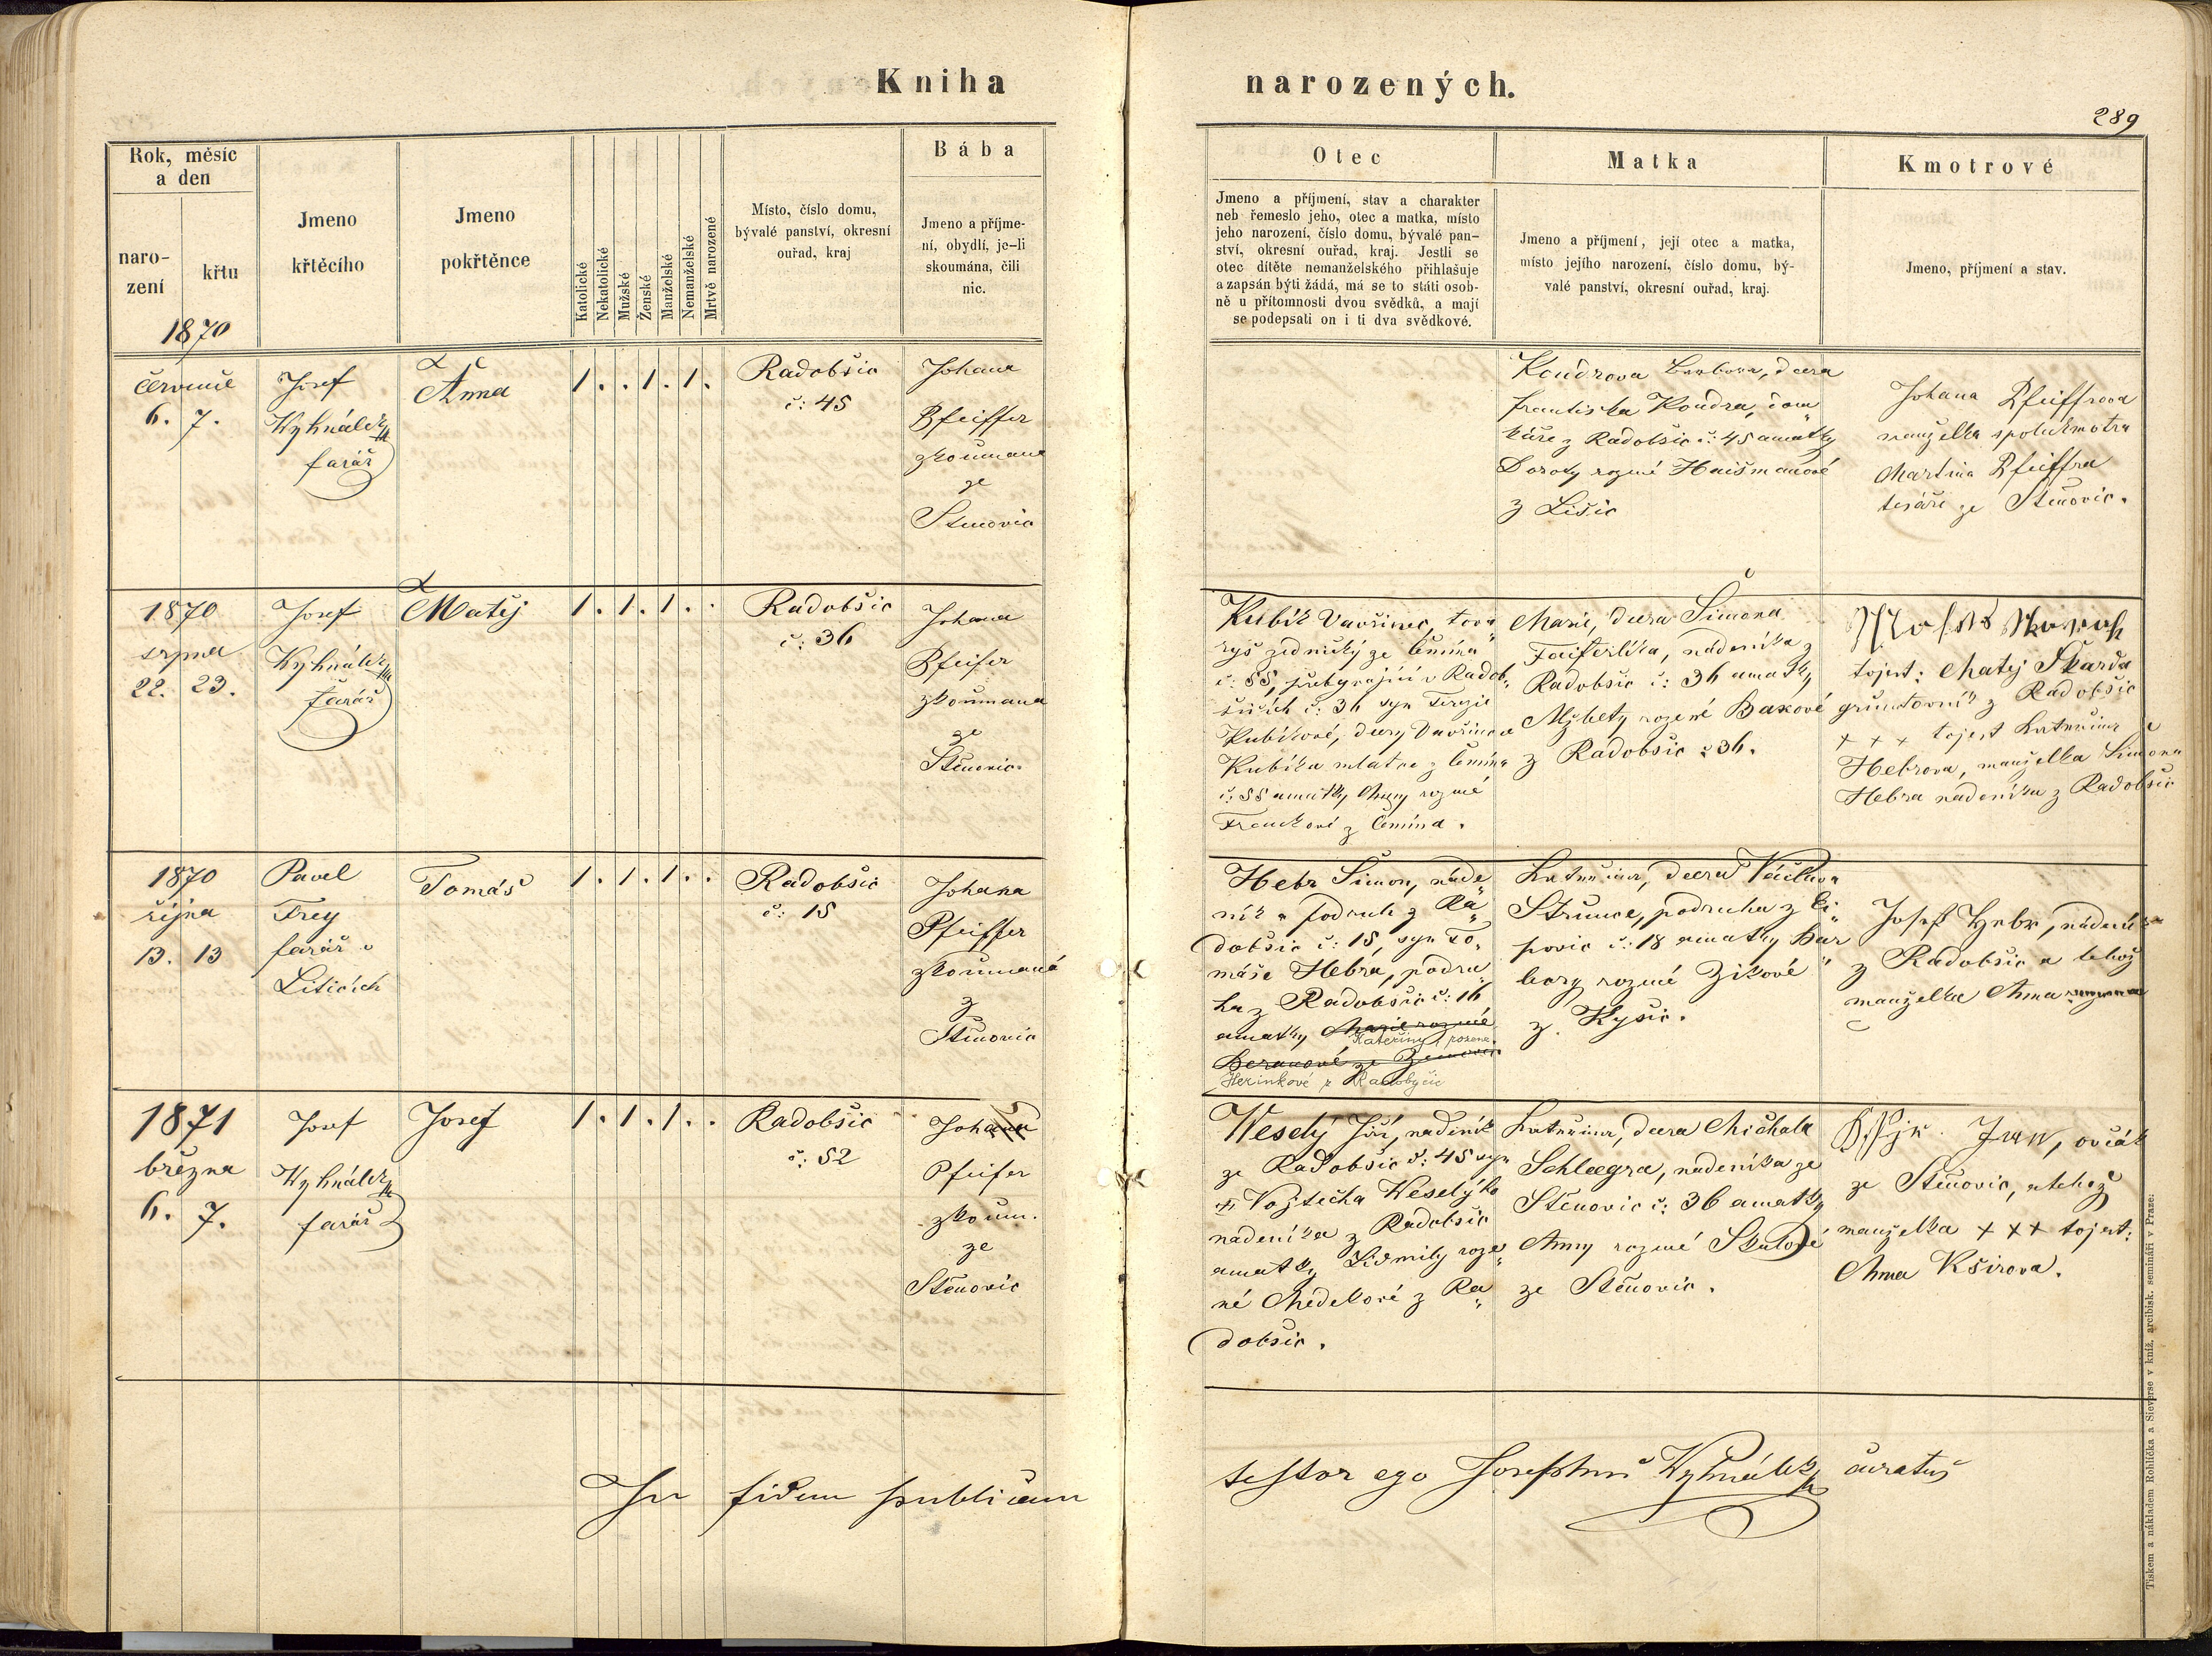 Kniha
narozených.
289
Rok, měsíc
a den
naro-
zení
křtu
1870
Jmeno
křtěcího
Jmeno
pokřtěnce
Katolické
Nekatolické
Mužské
Ženské
Manželské
Nemanželské
Mrtvě narozené
Místo, číslo domu,
bývalé panství, okresní
ouřad, kraj
Bába
Jmeno a příjme-
ní, obydlí, je-li
skoumána, čili
nic.
Otec
Jmeno a příjmení, stav a charakter
neb řemeslo jeho, otec a matka, místo
jeho narození, číslo domu, bývalé pan-
ství, okresní ouřad, kraj. Jestli se
otec dítěte nemanželského přihlašuje
a zapsán býti žádá, má se to státi osob-
ně u přítomnosti dvou svědků, a mají
se podepsati on i ti dva svědkové.
Matka
Jmeno a příjmení, její otec a matka,
místo jejího narození, číslo domu, bý-
valé panství, okresní ouřad, kraj.
Kmotrové
Jmeno, příjmení a stav.
července
6. 7.
Josef
Wyhnálek
farář
Anna
1. . 1. 1.
Radobšic
č: 45
Johana
Pfeiffer
zkoumana
ze
Stěnovic
Koudrova Barbora, dcera
Františka Koudra, dom
káře z Radobšic č: 45 a matky
Doroty rozené Haišmanové
z Lišic
Johana Pfeiffrova
manželka spolukmotra
Martina Pfeiffra
tesáře ze Stěnovic.
1870
srpna
22. 23.
Josef
Wyhnálek
farář
Matěj
1. 1. 1. .
Radobšic
č: 36
Johana
Pfeifer
zkoumana
ze
Stěnovic
Kubík Vavřinec, tova
ryš zednický ze Čemína
č: 55, přebývající v Radob
šicích č: 36 syn Terezie
Kubíkové, dcery Vavřince
Kubíka mlatce z Čemína
č: 55 a matky Anny rozené
z Čemína.
Marie, dcera Šimona
Faiferlíka, nádeníka z
Radobšic č: 36 a matky
Alžbety rozené Baxové
z Radobšic č 36.
tojest: Matěj Škarda
gruntovník z Radobšic
+ + + tojest Kateřina
Hebrova, manželka Šimona
Hebra nádeníka z Radobšic
1870
října
13. 13
Pavel
Frey
farář v
Liticích
Tomáš
1. 1. 1. .
Radobšic
č: 15
Johana
Pfeiffer
zkoumaná
z
Stěnovic
Hebr Šimon, náde
ník a podruh z Ra
dobšic č: 15, syn To
máše Hebra, podru
ha z Radobšic č: 16
a matky Marie rozené
Kateřiny rozené
Beranové ze
Herinkové z Radobyčic
Kateřina, dcera Václava
Strunce, podruha z Li
povic č: 18 a matky Bar
bory rozené Zikové
z Kyšic.
Josef Hebr, nádeník
z Radobšic a tehož
manželka Anna
1871
března
6. 7.
Josef
Wyhnálek
farář
Josef
1. 1. 1. .
Radobšic
č: 52
Johana
Pfeifer
zkoum.
ze
Stěnovic
Weselý Jiří, nádeník
ze Radobšic č: 45 syn
Vojtěcha Weselýho
nádeníka z Radobšic
a matky Lidmily roze
né Medelové z Ra
dobšic.
Kateřina, dcera Michala
Schlegra, nádeníka ze
Stěnovic č: 36 a matky
Anny rozené Skalové
ze Stěnovic.
Jan, ovčák
ze Stěnovic, a tehož
manželka + + + tojest:
Anna Kširova.
In fidem publicam
testor ego Josephus Wyhnálek curatus
Tiskem a nákladem Rohlíčka a Sieverse v kníž. arcibisk. semináři v Praze.